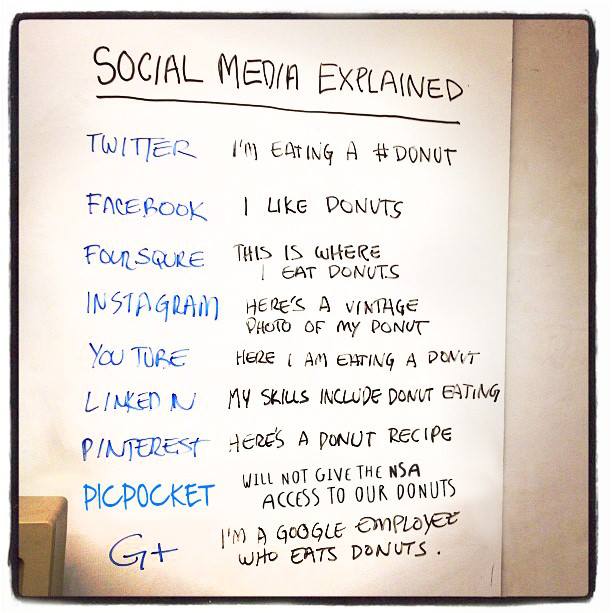 SOCIAL MEDIA EXPLAINED
TWITTER I'M EATING A #DONUT
FACEBOOK I LIKE DONUTS
FOURSQURE THIS IS WHERE
I EAT DONUTS
INSTAGRAM HERE'S A VINTAGE
PHOTO OF MY DONUT
YOU TUBE HERE I AM EATING A DONUT
LINKED IN MY SKILLS INCLUDE DONUT EATING
PINTEREST HERE'S A DONUT RECIPE
PICPOCKET WILL NOT GIVE THE NSA
ACCESS TO OUR DONUTS
G+ I'M A GOOGLE EMPLOYEE
WHO EATS DONUTS.